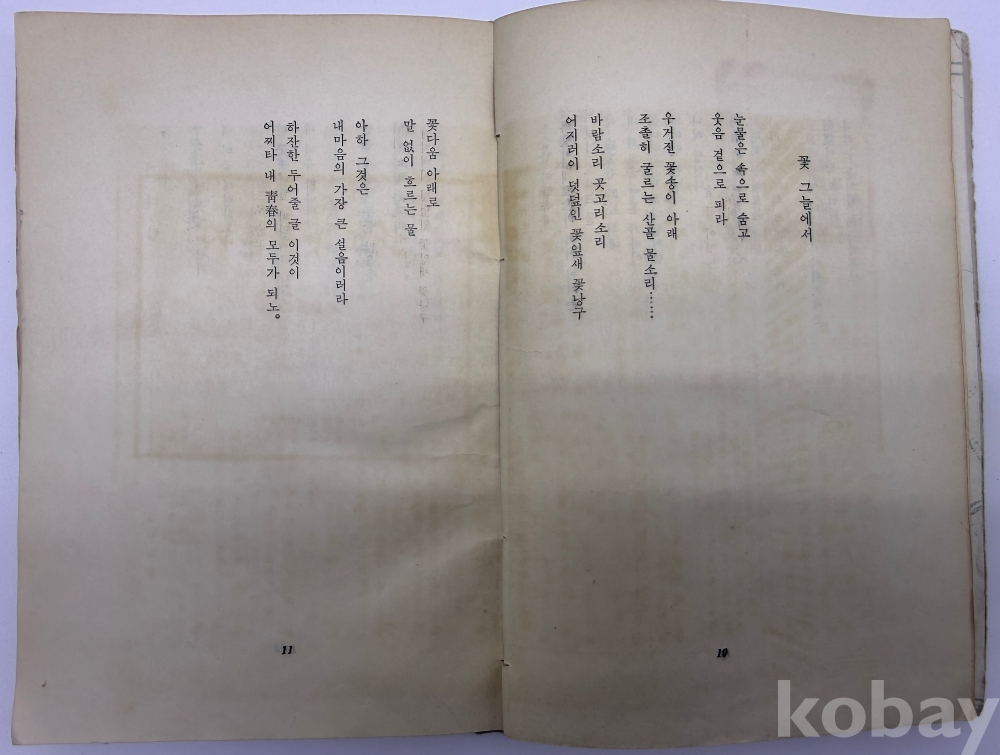 꽃 그늘에서
눈물은 속으로 숨고
웃음 겉으로 피라
우거진 꽃송이 아래
조촐히 굴르는 산골 물소리……
바람소리 곳고리소리
어지러이 덧덮인 꽃잎새 꽃낭구
10
꽃다움 아래로
말 없이 흐르는 물
아하 그것은
내마음의 가장 큰 설음이러라
하잔한 두어줄 글 이것이
어찌타 내 靑春의 모두가 되노。
11
kobay